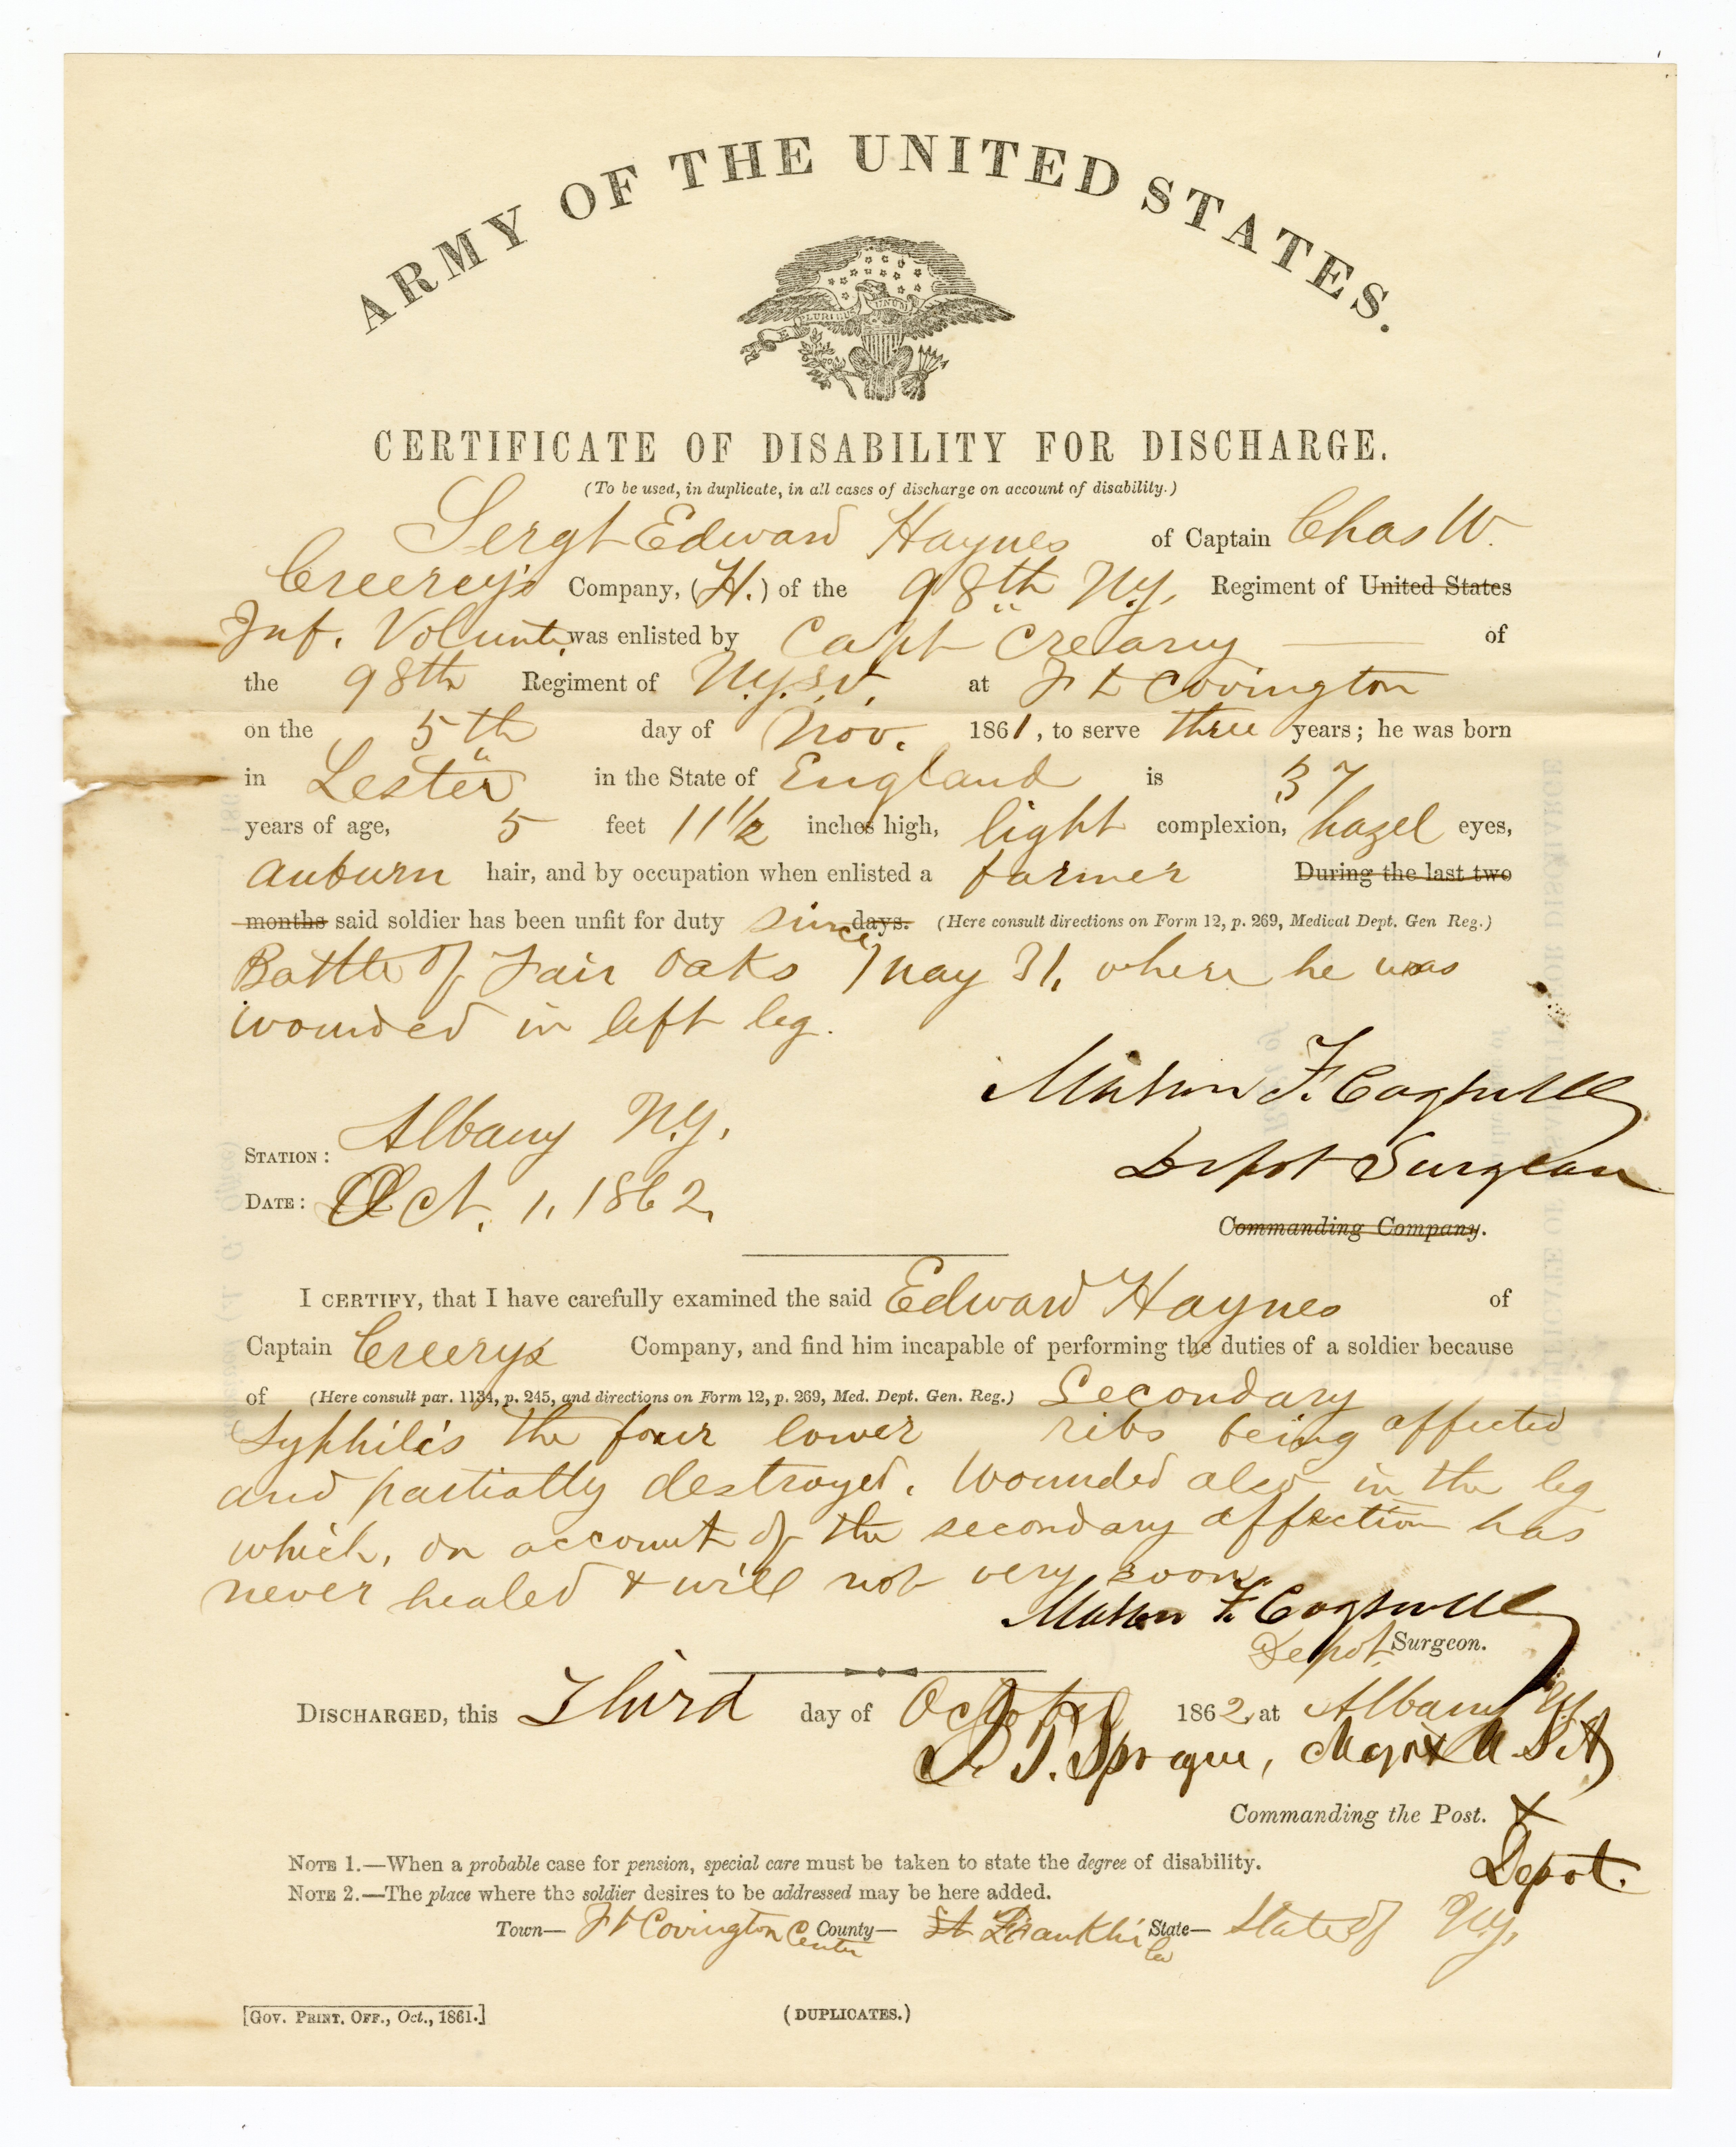 ARMY OF THE UNITED STATES.
E PLURIBUS UNUM
CERTIFICATE OF DISABILITY FOR DISCHARGE.
(To be used, in duplicate, in all cases of discharge on account of disability.)
Sergt Edward Haynes of Captain Chas W.
Creerey's Company, (H.) of the 98th N.Y. Regiment of United States
Inf. Volunt. was enlisted by Capt Crearny of
the 98th Regiment of N.Y.S.V. at Ft Covington
on the 5th day of Nov. 1861, to serve three years; he was born
in Lester in the State of England is 37
years of age, 5 feet 11 1/2 inches high, light complexion, hazel eyes,
auburn hair, and by occupation when enlisted a farmer During the last two
months said soldier has been unfit for duty since days. (Here consult directions on Form 12, p. 269, Medical Dept. Gen Reg.)
Battle of Fair Oaks May 31, where he was
wounded in left leg.
Mason F. Cogswell
Depot Surgeon
STATION: Albany N.Y.
DATE: Oct. 1, 1862.
Commanding Company.
I CERTIFY, that I have carefully examined the said Edward Haynes of
Captain Creerys Company, and find him incapable of performing the duties of a soldier because
of (Here consult par. 1134, p. 245, and directions on Form 12, p. 269, Med. Dept. Gen. Reg.) Secondary
Syphilis the four lower ribs being affected
and partially destroyed. Wounded also in the leg
which, on account of the secondary affection has
never healed & will not very soon.
Mason F. Cogswell
Depot Surgeon.
DISCHARGED, this Third day of October 1862, at Albany NY
J. T. Sprague, Major U.S.A
Commanding the Post. &
Depot.
NOTE 1.—When a probable case for pension, special care must be taken to state the degree of disability.
NOTE 2.—The place where the soldier desires to be addressed may be here added.
Town— Ft Covington Center County— St Franklin Co State— State of N.Y.
[GOV. PRINT. OFF., Oct., 1861.] (DUPLICATES.)